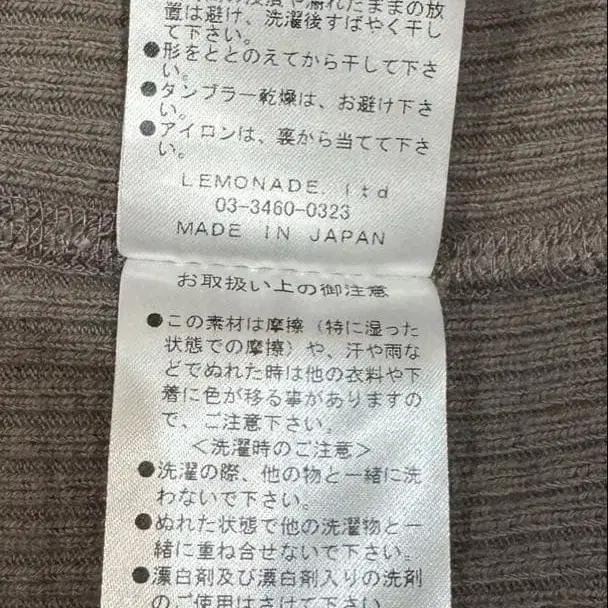 濡れたままの放
置は避け、洗濯後すばやく干し
て下さい。
●形をととのえてから干して下さ
い。
●タンブラー乾燥は、お避け下さ
い。
●アイロンは、裏から当てて下さ
い。
LEMONADE. ltd
03-3460-0323
MADE IN JAPAN
お取扱い上の御注意
●この素材は摩擦(特に湿った
状態での摩擦)や、汗や雨な
どでぬれた時は他の衣料や下
着に色が移る事がありますの
で、ご注意下さい。
<洗濯時のご注意>
●洗濯の際、他の物と一緒に洗
わないで下さい。
●ぬれた状態で他の洗濯物と一
緒に重ね合せないで下さい。
●漂白剤及び漂白剤入りの洗剤
のご使用はさけて下さい